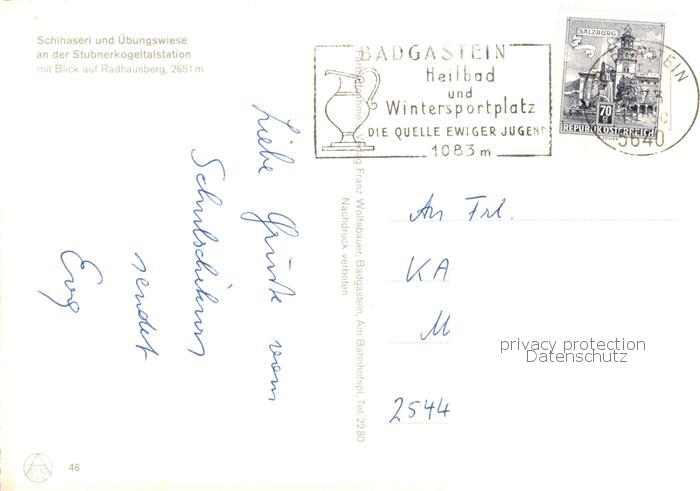 Schihaserl und Übungswiese
an der Stubnerkogeltalstation
mit Blick auf Radhausberg, 2651 m
BADGASTEIN
Heilbad
und
Wintersportplatz
DIE QUELLE EWIGER JUGEND
1083 m
SALZBURG
70
g
REPUBLIK ÖSTERREICH
5640
Liebe Grüße vom
Schulschikurs
sendet
Evg
Verlag Franz Wolfsbauer, Badgastein, Am Bahnhofspl, Tel. 2280
Nachdruck verboten
An Frl.
KA
M
2544
privacy protection
Datenschutz
46